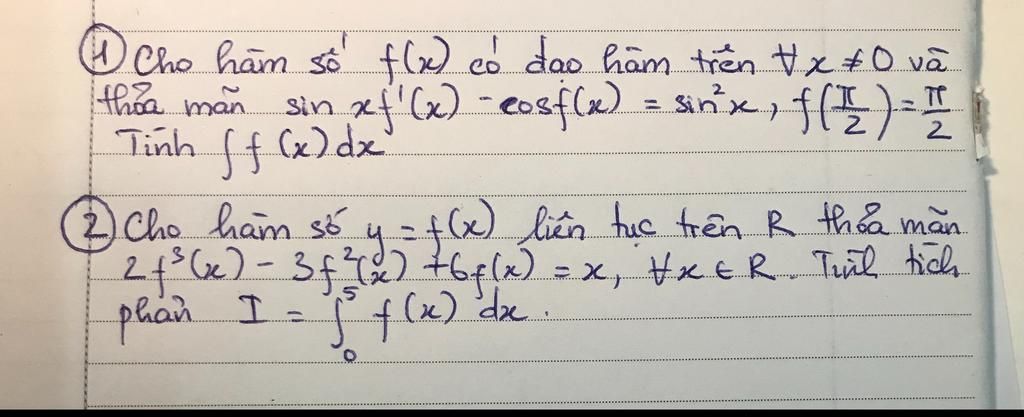 ① Cho hàm số f(x) có đạo hàm trên ∀x ≠ 0 và
thỏa mãn sin xf'(x) - cosf(x) = sin²x, f(π/2) = π/2
Tính ∫f(x)dx
② Cho hàm số y = f(x) liên tục trên R thỏa mãn
2f³(x) - 3f²(x) + 6f(x) = x, ∀x ∈ R. Tính tích
phân I = ∫₀⁵ f(x) dx.